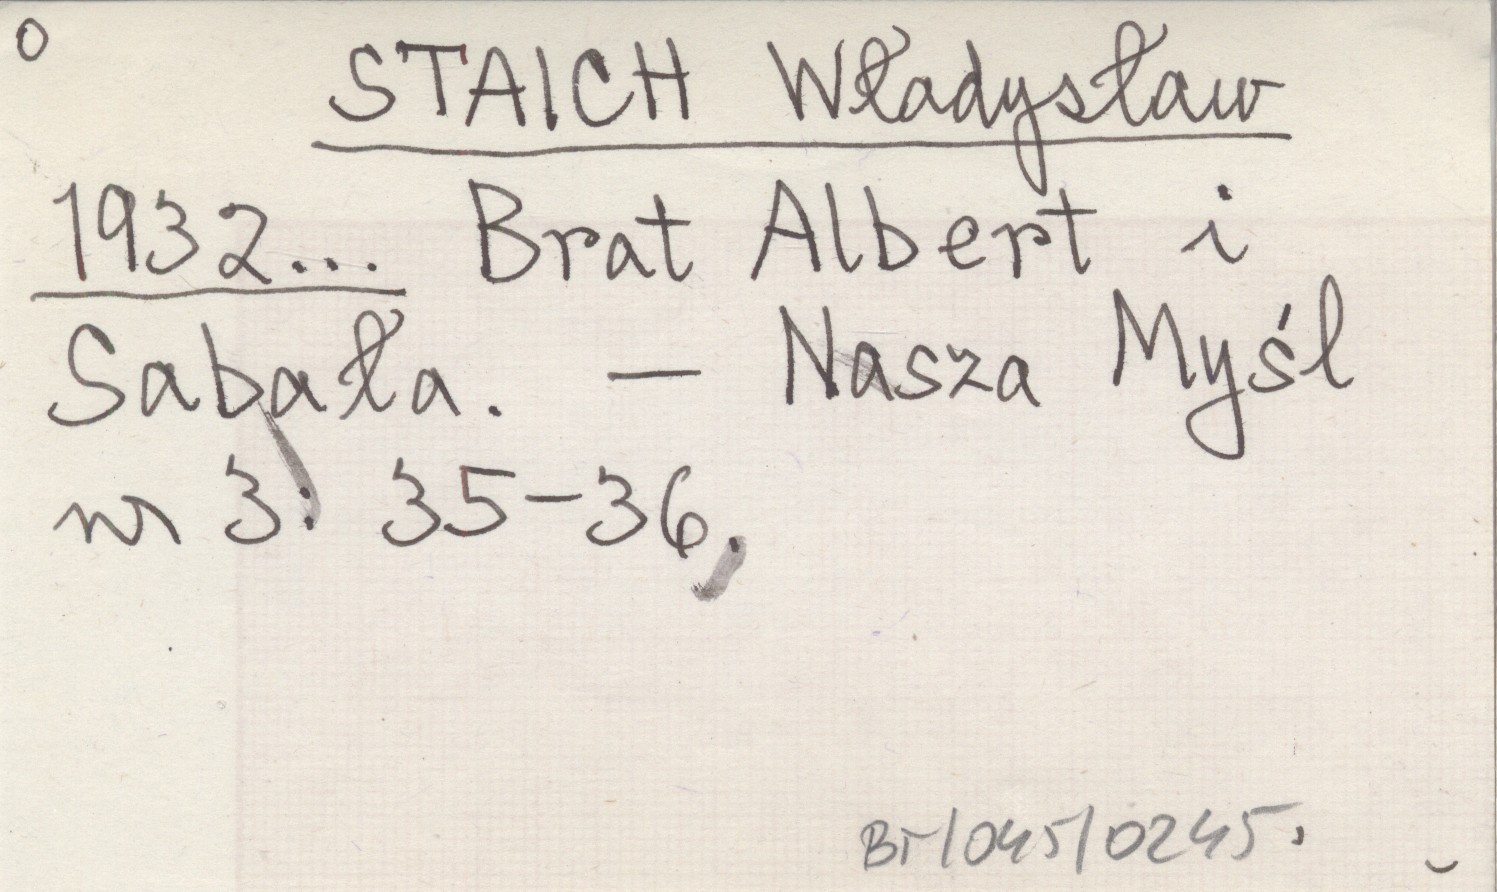 0
STAICH Władysław
1932... Brat Albert i
Sabała. — Nasza Myśl
nr 3: 35-36.
Br/045/0245.